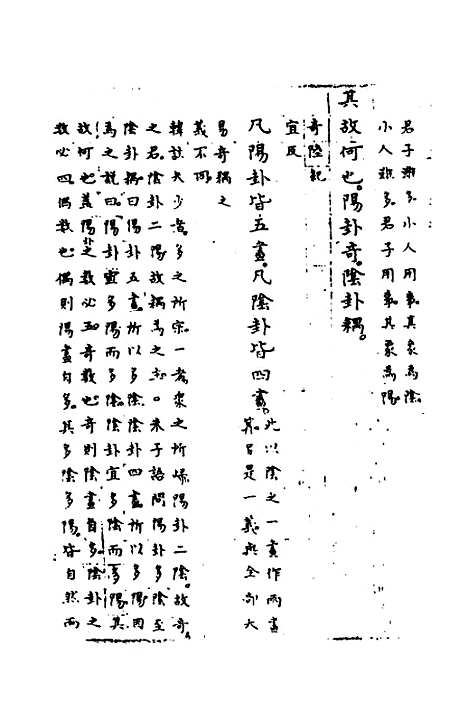 君子雖多小人用事其象為陰
小人雖多君子用事其象為陽
其故何也。陽卦奇。陰卦耦。
奇陸紀
宜反
凡陽卦皆五畫。凡陰卦皆四畫。
此以陰之一畫作兩畫
算。自是一義與全部大
易奇耦之
義不同
韓註夫少者。多之所宗。一者眾之所歸。陽卦二陰。故奇
之君。陰卦二陽。故耦為之。○朱子語問陽卦多陰至
陰卦耦。曰陽卦五畫。所以多陰。陰卦四畫。所以多陽。因
為之說曰。陽卦宜多陽而多陰。陰卦宜多陰而多陽。其
故何也。蓋陽卦之數必五。奇數也。奇則陰畫自多。陰卦之
數必四。偶數也。偶則陽畫自多。其多陰多陽。皆自然而